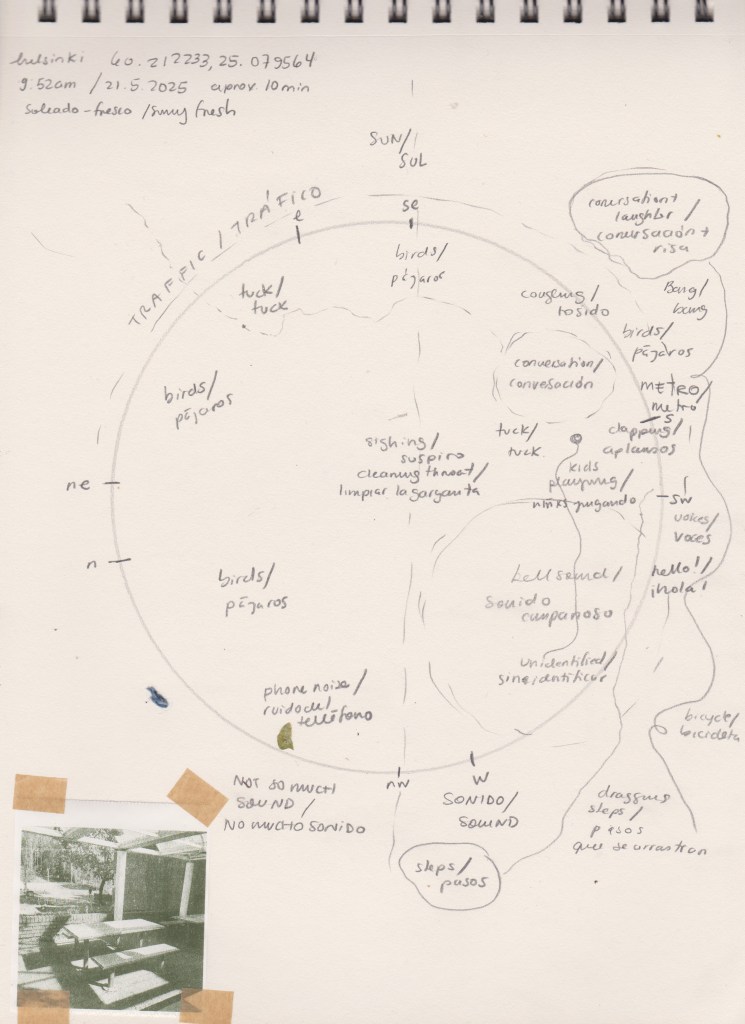 helsinki 60.212233, 25.079564
9:52am / 21.5.2025 aprox. 10 min
soleado-fresco / sunny fresh
SUN/
SUL
TRAFFIC / TRÁFICO
e
se
conversation +
laughter /
conversación +
risa
birds/
pájaros
tuck/
tuck
cougling /
tosido
Bang/
bang
birds/
pájaros
conversation/
convesación
METRO/
metro
s
birds/
pájaros
clapping/
aplausos
tuck/
tuck
sighing/
suspiro
cleaning throat/
limpiar la garganta
kids
playing/
niñxs jugando
ne
sw
voices/
voces
n
hello!/
¡hola!
bell sound/
sonido
campanoso
birds/
pájaros
unidentified/
sin identificar
phone noise/
ruido del
teléfono
bicycle/
bicicleta
nw
w
NOT SO MUCH
SOUND /
NO MUCHO SONIDO
SONIDO/
SOUND
dragging
steps/
pasos
que se arrastran
steps/
pasos